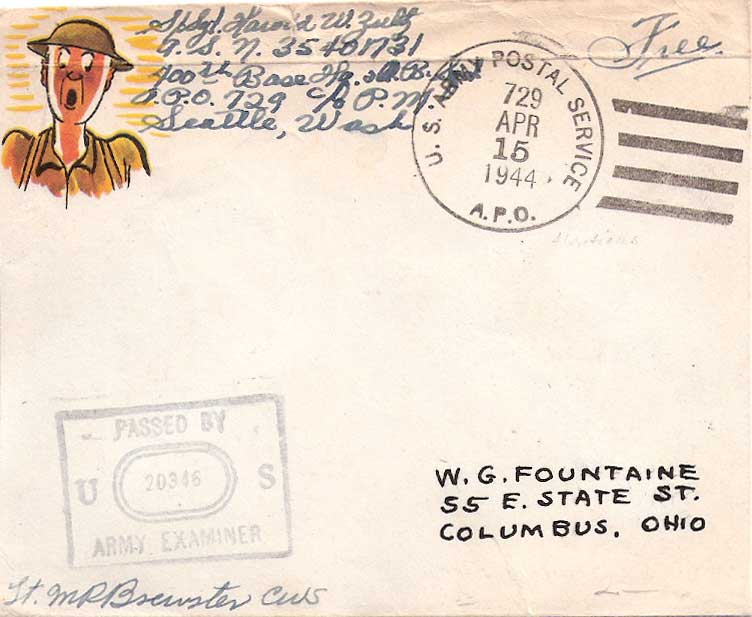 S/Sgt. Harold W. Zultz
A.S.N. 35401731
700th Base Hq. & A.B. Sq.
A.P.O. 729 c/o P.M.
Seattle, Wash
Free.
U.S. ARMY POSTAL SERVICE
729
APR
15
1944
A.P.O.
Aleutians
PASSED BY
U 20346 S
ARMY EXAMINER
W. G. FOUNTAINE
55 E. STATE ST.
COLUMBUS, OHIO
Lt. M R Brewster CWS